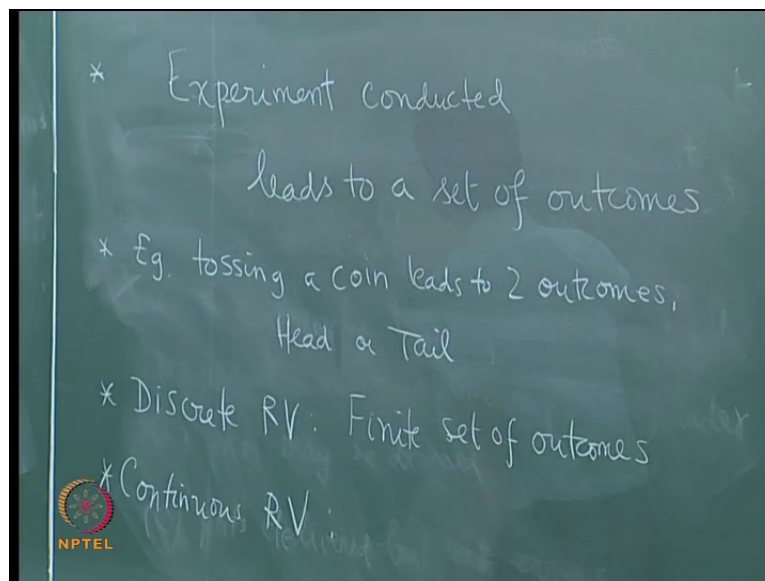 * Experiment conducted
leads to a set of outcomes
* Eg. tossing a coin leads to 2 outcomes,
Head or Tail
* Discrete RV: Finite set of outcomes
* Continuous RV:
NPTEL